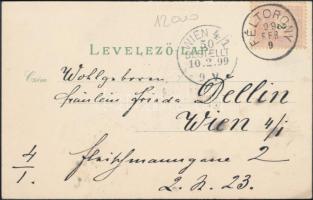 12000
LEVELEZŐ-LAP
FÉLTORONY
WIEN 4/2
50
BESTELLT
10.2.99
9.V
Czim
Wohlgeboren
Fräulein Frieda Dellin
Wien 4/1
4/1. Fleischmanngasse 2
2. St. 23.